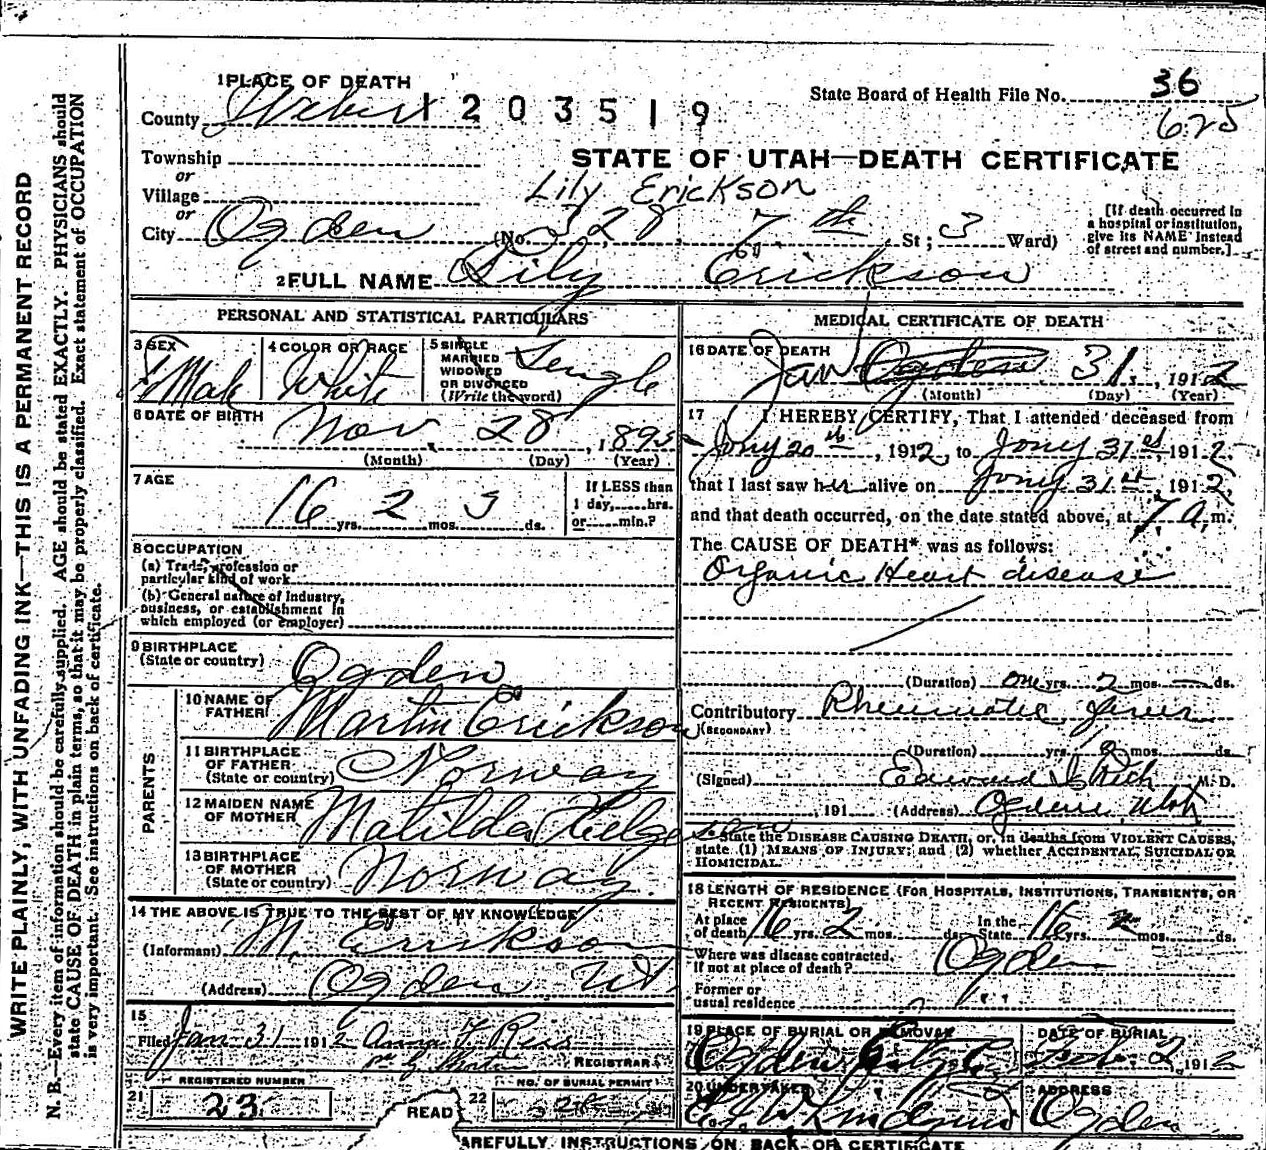 WRITE PLAINLY, WITH UNFADING INK—THIS IS A PERMANENT RECORD
N. B.—Every item of information should be carefully supplied. AGE should be stated EXACTLY. PHYSICIANS should
state CAUSE OF DEATH in plain terms, so that it may be properly classified. Exact statement of OCCUPATION
is very important. See instructions on back of certificate.
1 PLACE OF DEATH
County Weber
1203519
State Board of Health File No. 36
625
Township
or
Village
or
City Ogden
STATE OF UTAH—DEATH CERTIFICATE
Lily Erickson
(No. 328, 7th St; 3 Ward)
[If death occurred in
a hospital or institution,
give its NAME instead
of street and number.]
2 FULL NAME Lily Erickson
PERSONAL AND STATISTICAL PARTICULARS
3 SEX
4 COLOR OR RACE
White
5 SINGLE
MARRIED
WIDOWED
OR DIVORCED
(Write the word)
Single
6 DATE OF BIRTH
Nov. 28, 1895
(Month) (Day) (Year)
7 AGE
16 yrs. 2 mos. 3 ds.
If LESS than
1 day,......hrs.
or......min.?
8 OCCUPATION
(a) Trade, profession or
particular kind of work
(b) General nature of Industry,
business, or establishment in
which employed (or employer)
9 BIRTHPLACE
(State or country)
Ogden
PARENTS
10 NAME OF
FATHER
Martin Erickson
11 BIRTHPLACE
OF FATHER
(State or country)
Norway
12 MAIDEN NAME
OF MOTHER
Matilda Helgeson
13 BIRTHPLACE
OF MOTHER
(State or country)
Norway
14 THE ABOVE IS TRUE TO THE BEST OF MY KNOWLEDGE
(Informant) M. Errikson
(Address) Ogden Ut.
15
Filed Jan 31 1912 Anna F. Ress
REGISTRAR
21
REGISTERED NUMBER
23
22
NO. OF BURIAL PERMIT
READ CAREFULLY INSTRUCTIONS ON BACK OF CERTIFICATE
MEDICAL CERTIFICATE OF DEATH
16 DATE OF DEATH
Jan 31, 1912
(Month) (Day) (Year)
17 I HEREBY CERTIFY, That I attended deceased from
Jany 20th, 1912, to Jany 31st, 1912,
that I last saw her alive on Jany 31st, 1912,
and that death occurred, on the date stated above, at 7 a, m.
The CAUSE OF DEATH* was as follows:
Organic Heart disease
(Duration) one yrs. 2 mos. — ds.
Contributory Rheumatic fever
(SECONDARY)
(Duration) yrs. 2 mos. ds.
(Signed) Edward I Rich M. D.
, 191 (Address) Ogden, Utah
State the DISEASE CAUSING DEATH, or, in deaths from VIOLENT CAUSES,
state (1) MEANS OF INJURY; and (2) whether ACCIDENTAL, SUICIDAL OR
HOMICIDAL.
18 LENGTH OF RESIDENCE (FOR HOSPITALS, INSTITUTIONS, TRANSIENTS, OR
RECENT RESIDENTS)
At place
of death 16 yrs. 2 mos. ds.
In the
State 16 yrs. 2 mos. ds.
Where was disease contracted,
if not at place of death? Ogden
Former or
usual residence
19 PLACE OF BURIAL OR REMOVAL
Ogden City
DATE OF BURIAL
Feb. 2, 1912
20 UNDERTAKER
ADDRESS
Ogden